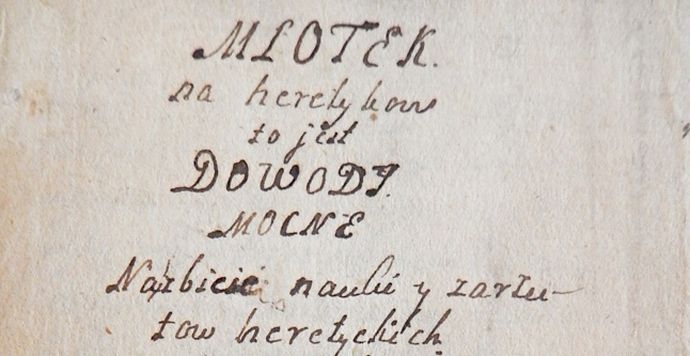 MLOTEK.
na heretykow
to jest
DOWODY.
MOCNE
Nazbicie nauki y zarzu-
tow heretyckich